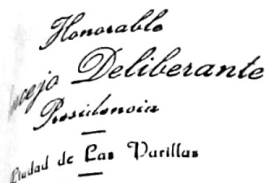 Honorable
ncejo Deliberante
Presidencia
Ciudad de Las Varillas